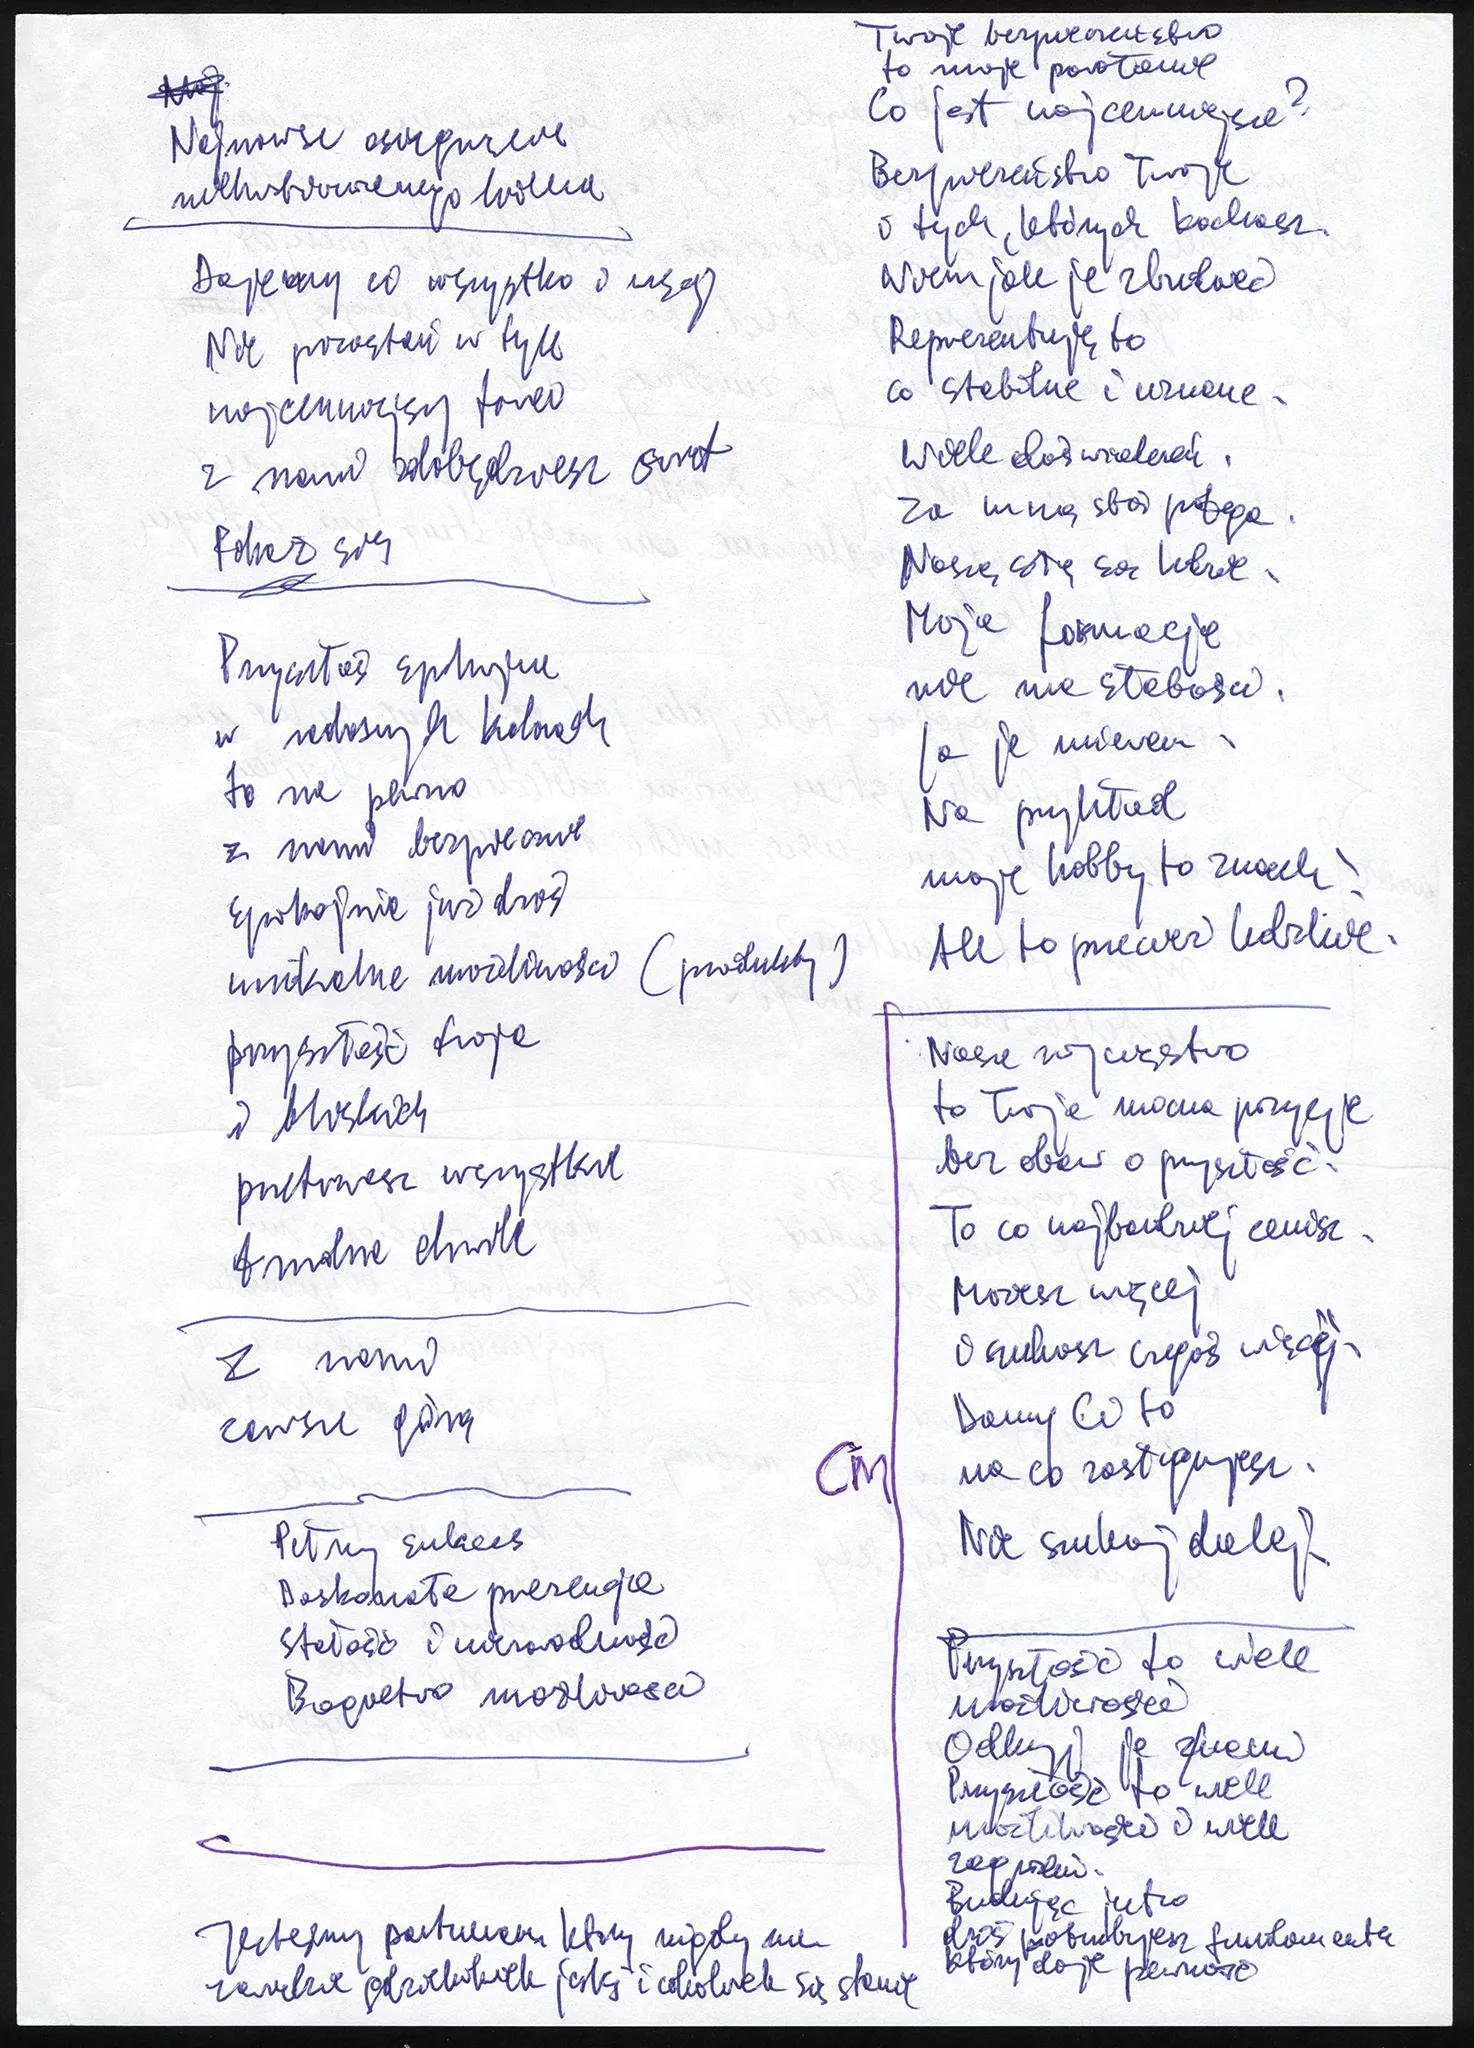 Najnowsze osiągnięcie
Dajemy ci wszystko i więcej
Nie pozostań w tyle
najcenniejszy towar
z nami zdobędziesz świat
Pokaż się
Przyszłość spokojna
w radosnych kolorach
to na pewno
z nami bezpiecznie
spokojnie już dziś
unikalne możliwości (produkty)
przyszłość twoja
i bliskich
przetrwasz wszystkie
trudne chwile
Z nami
zawsze górą
Pełny sukces
Doskonała prezencja
Stałość i niezawodność
Bogactwo możliwości
Jesteśmy partnerem który nigdy nie
zawiedzie gdziekolwiek jesteś i cokolwiek się stanie
Twoje bezpieczeństwo
to moje powołanie
Co jest najcenniejsze?
Bezpieczeństwo Twoje
i tych, których kochasz.
Wiem jak je zbudować
Reprezentuję to
co stabilne i uznane.
Wiele doświadczeń.
Za mną stoi potęga.
Naszą siłą są ludzie.
Moja formacja
nie ma słabości.
Ja je miewam.
Na przykład
moje hobby to znaczki!
Ale to przecież ludzkie.
Nasze zwycięstwo
to Twoja mocna pozycja
bez obaw o przyszłość.
To co najbardziej cenisz.
Możesz więcej
i szukasz czegoś więcej.
CM
Damy Ci to
na co zasługujesz.
Nie szukaj dalej.
Przyszłość to wiele
możliwości
Odkryj je z nami
Przyszłość to wiele
możliwości i wiele
zagrożeń.
Budując jutro
dziś potrzebujesz fundamentu
który daje pewność